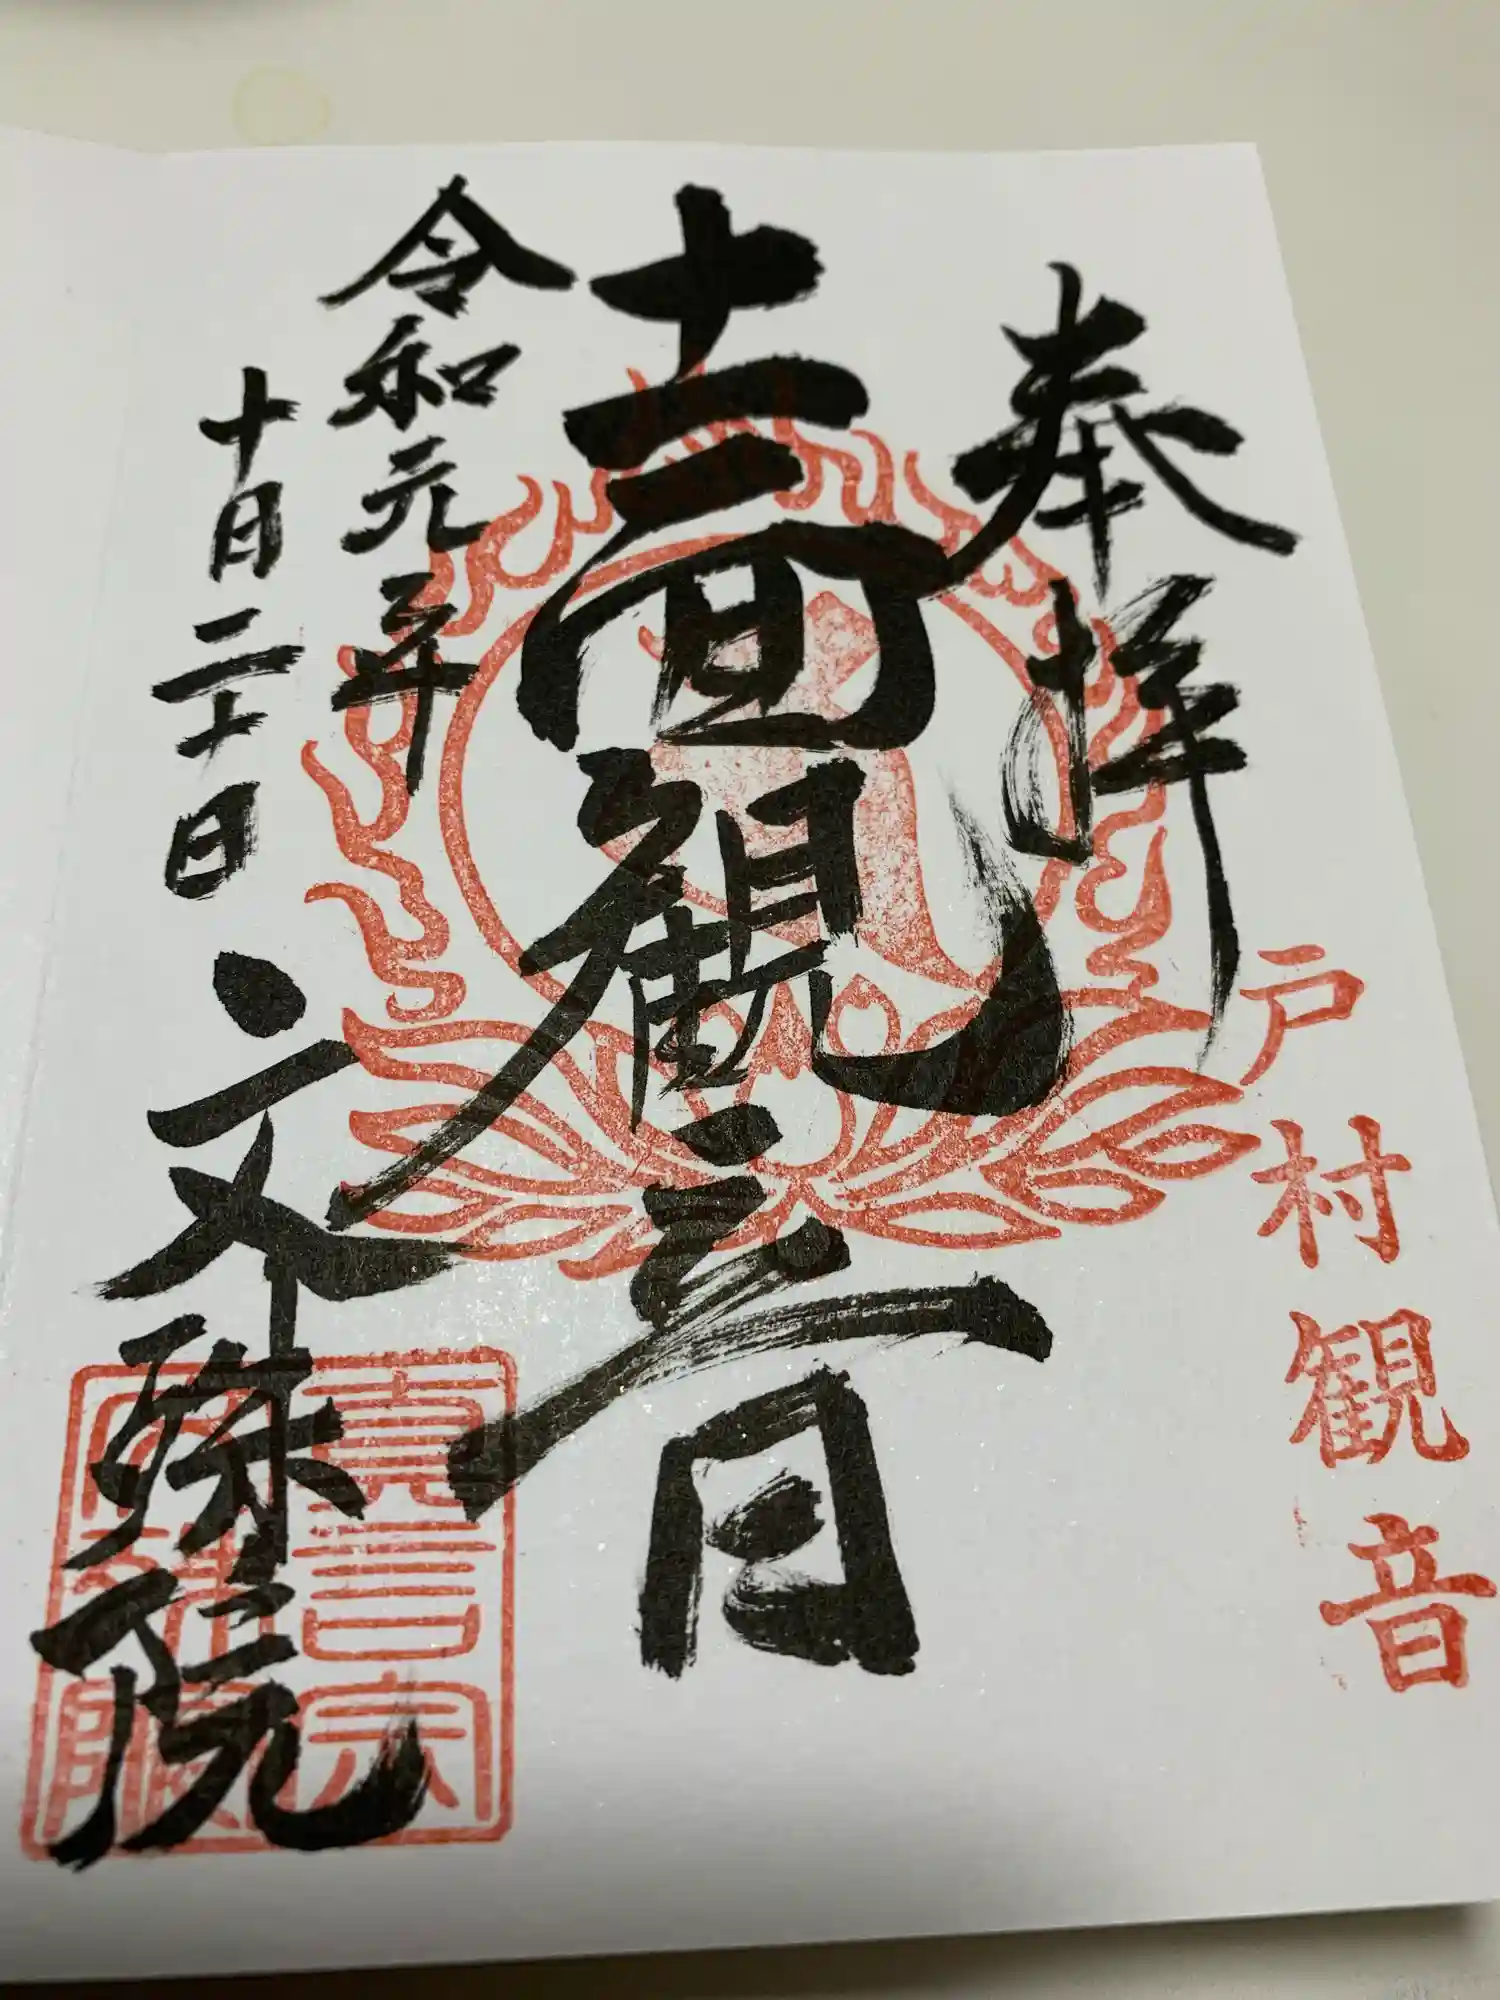 奉拝
戸村観音
十一面観世音
令和元年
十月二十日
文殊院
真言宗
文殊院